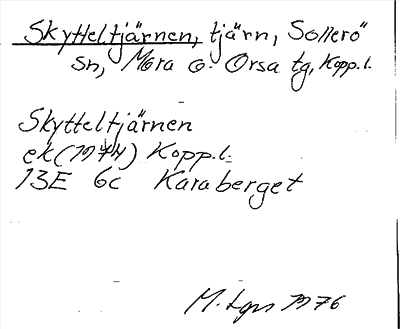 Skytteltjärnen, tjärn, Sollerö
sn, Mora o. Orsa tg, Kopp.l.
Skytteltjärnen
ek (1974) Kopp.l.
13E 6c Karaberget
M. 1976